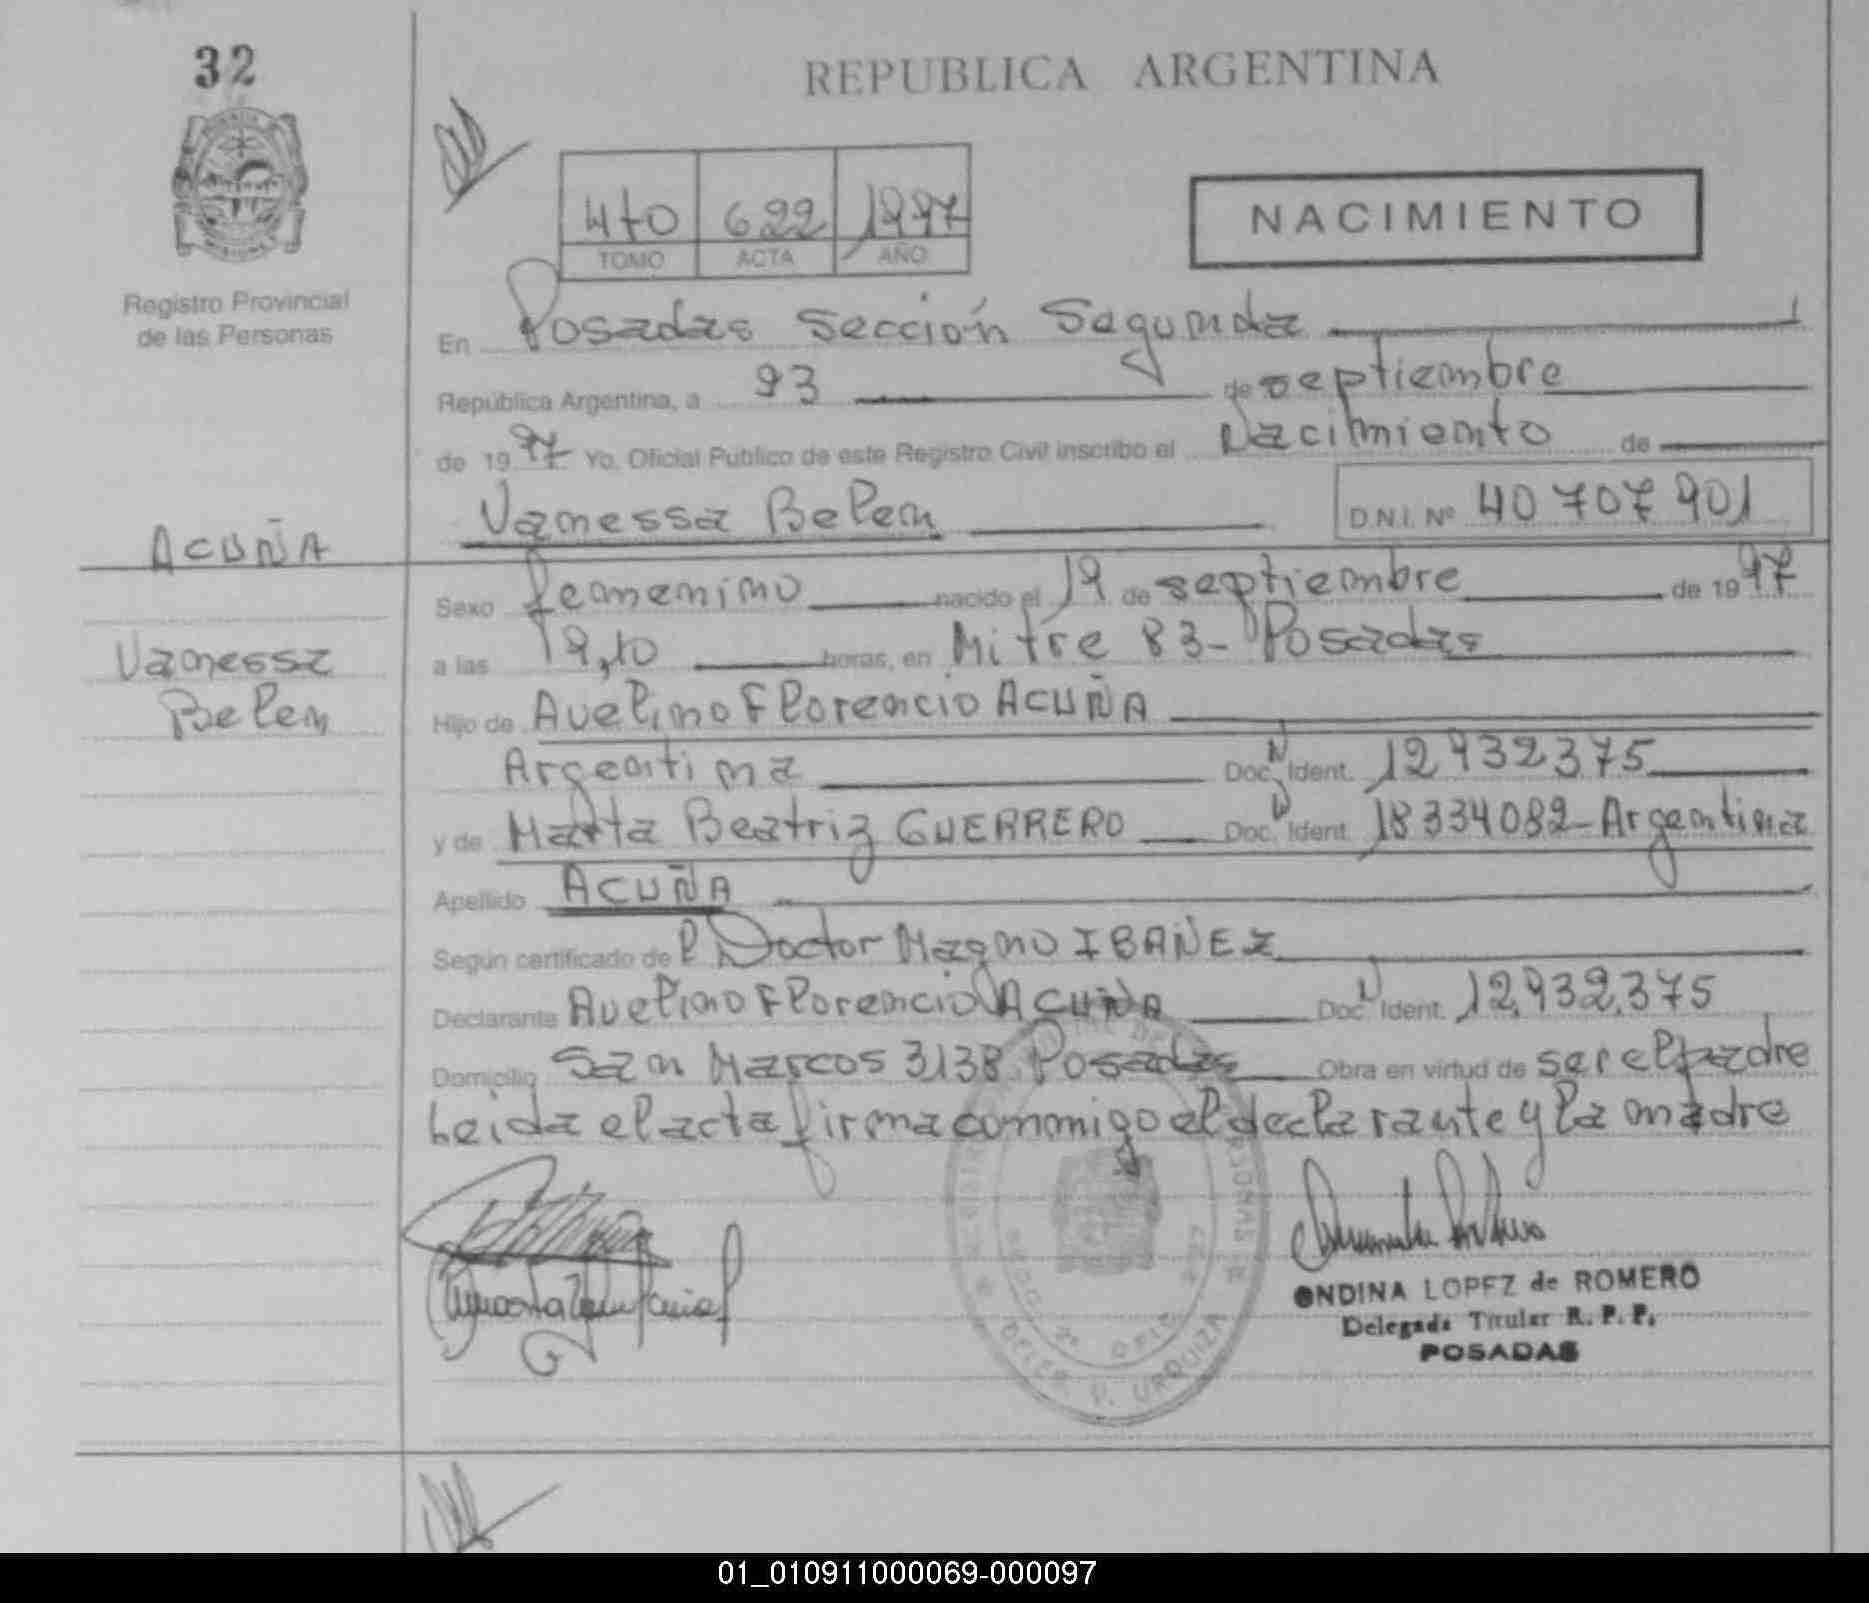 32
REPUBLICA ARGENTINA
470 622 1997
TOMO ACTA AÑO
NACIMIENTO
Registro Provincial
de las Personas
En Posadas Sección Segunda
República Argentina, a 23 de septiembre
de 1997 Yo, Oficial Publico de este Registro Civil inscribo el Nacimiento de
Vanessa Belen D.N.I. Nº 40 707 901
ACUÑA
Vanessa
Belen
Sexo femenino nacido el 19 de septiembre de 1997
a las 19,10 horas, en Mitre 83 - Posadas
Hijo de Avelino Florencio ACUÑA
Argentina Doc. N Ident. 12932375
y de Marta Beatriz GUERRERO Doc. N Ident. 18334082 - Argentina
Apellido ACUÑA
Según certificado de l Doctor Magno IBAÑEZ
Declarante Avelino Florencio ACUÑA Doc. N Ident. 12.932.375
Domicilio San Marcos 3138 Posadas Obra en virtud de ser el padre
Leida el acta firma conmigo el declarante y la madre
ONDINA LOPEZ de ROMERO
Delegada Titular R. P. P.
POSADAS
DELEG. V. URQUIZA
01_010911000069-000097